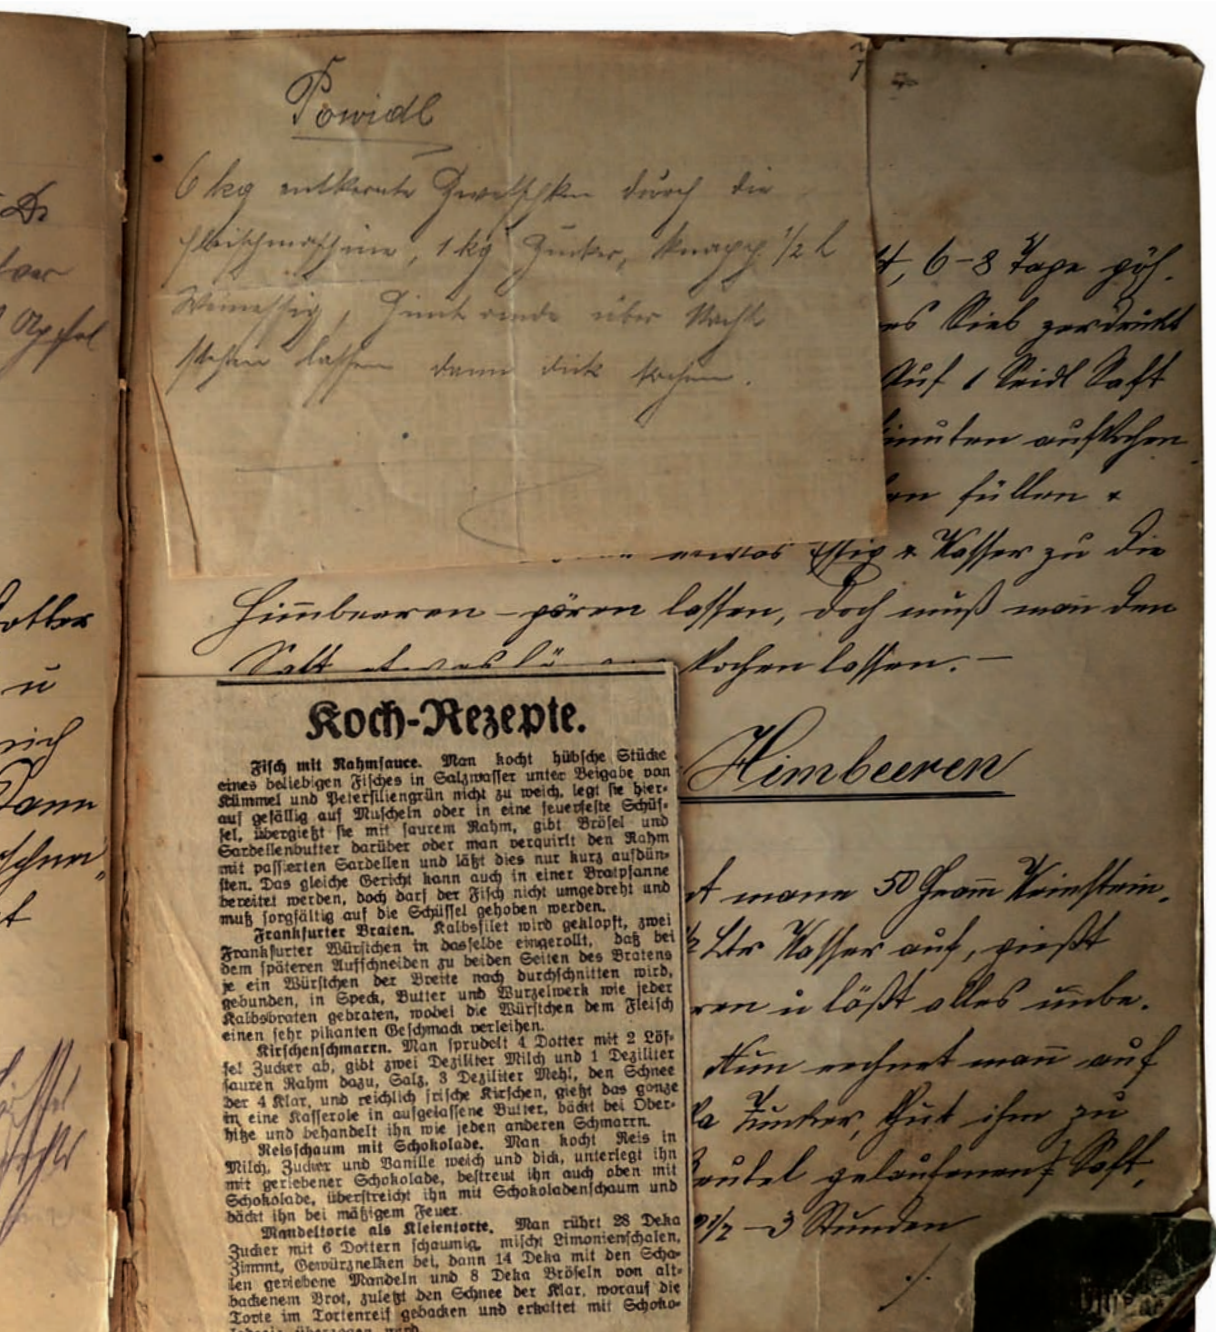 Powidl
6 kg entkernte Zwetschken durch die
Fleischmaschine, 1 kg Zucker, knapp 1/2 l
Weinessig, Zimtrinde über Nacht
stehen lassen dann dick kochen.
Apfel
Dotter
u
Dann
6-8 Tage gäh.
Sieb zerdrückt
Auf 1 Seidl Saft
aufkochen
füllen &
etwas Essig & Wasser zu die
Himbeeren - gären lassen, doch muß man den
Saft etwas kochen lassen. -
Himbeeren
mann 50 Gramm Weinstein.
Ltr Wasser auf, gießt
u läßt alles unbe.
Nun rechnet mann auf
Zucker, thut ihn zu
gelaufenen Saft,
2 1/2 - 3 Stunden
Koch-Rezepte.
Fisch mit Rahmsauce. Man kocht hübsche Stücke
eines beliebigen Fisches in Salzwasser unter Beigabe von
Kümmel und Petersiliengrün nicht zu weich, legt sie hier-
auf gefällig auf Muscheln oder in eine feuerfeste Schüs-
sel, übergießt sie mit saurem Rahm, gibt Brösel und
Sardellenbutter darüber oder man verquirlt den Rahm
mit passierten Sardellen und läßt dies nur kurz aufdün-
sten. Das gleiche Gericht kann auch in einer Bratpfanne
bereitet werden, doch darf der Fisch nicht umgedreht und
muß sorgfältig auf die Schüssel gehoben werden.
Frankfurter Braten. Kalbsfilet wird geklopft, zwei
Frankfurter Würstchen in dasselbe eingerollt, daß bei
dem späteren Aufschneiden zu beiden Seiten des Bratens
je ein Würstchen der Breite nach durchschnitten wird,
gebunden, in Speck, Butter und Wurzelwerk wie jeder
Kalbsbraten gebraten, wobei die Würstchen dem Fleisch
einen sehr pikanten Geschmack verleihen.
Kirschenschmarrn. Man sprudelt 4 Dotter mit 2 Löf-
fel Zucker ab, gibt zwei Deziliter Milch und 1 Deziliter
sauren Rahm dazu, Salz, 3 Deziliter Mehl, den Schnee
der 4 Klar, und reichlich frische Kirschen, gießt das ganze
in eine Kasserole in aufgelassene Butter, bäckt bei Ober-
hitze und behandelt ihn wie jeden anderen Schmarrn.
Reisschaum mit Schokolade. Man kocht Reis in
Milch, Zucker und Vanille weich und dick, unterlegt ihn
mit geriebener Schokolade, bestreut ihn auch oben mit
Schokolade, überstreicht ihn mit Schokoladenschaum und
bäckt ihn bei mäßigem Feuer.
Mandeltorte als Kleientorte. Man rührt 28 Deka
Zucker mit 6 Dottern schaumig, mischt Limonienschalen,
Zimmt, Gewürznelken bei, dann 14 Deka mit den Scha-
len geriebene Mandeln und 8 Deka Bröseln von alt-
backenem Brot, zuletzt den Schnee der Klar, worauf die
Torte im Tortenreif gebacken und erkaltet mit Schoko-